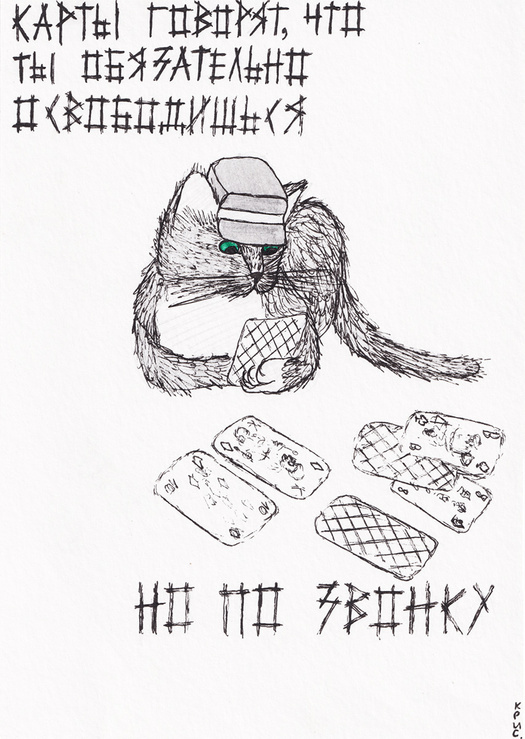 КАРТЫ ГОВОРЯТ, ЧТО
ТЫ ОБЯЗАТЕЛЬНО
ОСВОБОДИШЬСЯ
НО ПО ЗВОНКУ
КРИС.